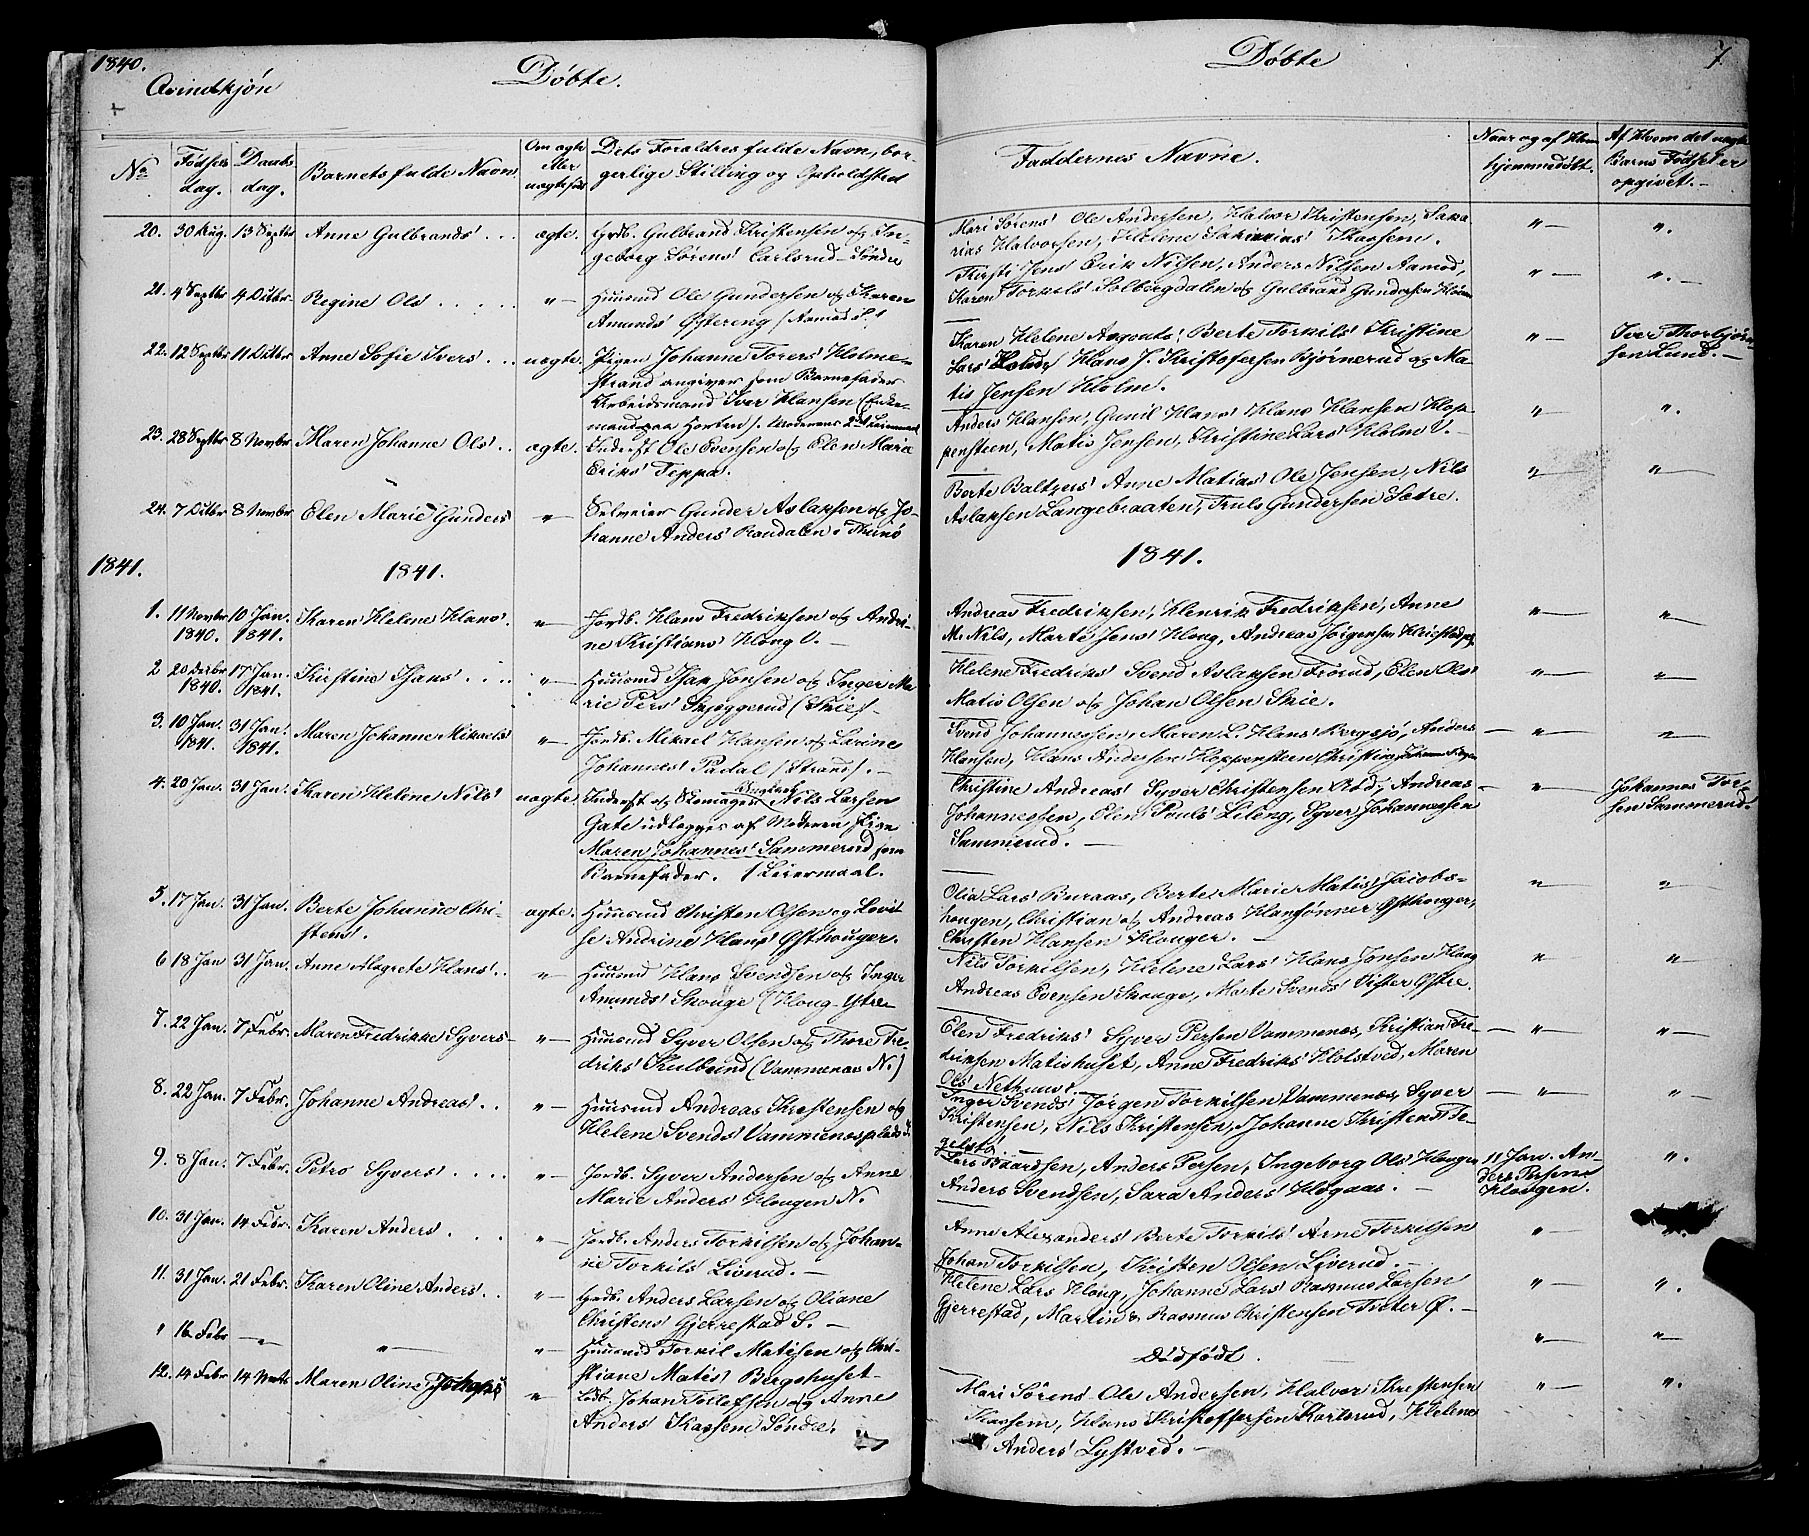 1840.
Qvindekjön
Döbte.
No
Födsels
dag.
Daabs
dag.
Barnets fulde Navn
Om ægte
eller
uægtefød
Dets Foraldres fulde Navn, bor-
gerlige Stilling og Opholdsted
20. 30 Aug. 13 Septbr Anne Gulbrands' . . . ægte. Grdb. Gulbrand Kristensen og In-
geborg Sörens' Carlsrud Söndre
21. 4 Septbr 4 Octbr Regine Ols' . . . . . "— Huusmd Ole Gundersen og Karen
Amunds' Östereng (Aamod S.)
22. 12 Septbr 11 Octbr Anne Sofie Ivers' . . . uægte. Pigen Johanne Torers' Holme-
strand angiver som Barnefader
Arbeidsmand Iver Hansen (Enke-
mand paa Horten). Moderens 2det Leiermaal
23. 28 Septbr 8 Novbr Maren Johanne Ols' . . ægte. Inderst Ole Evensen og Elen Marie
Eriks' Teppa.
24. 7 Octbr 8 Novbr Elen Marie Gunders' "— Selveier Gunder Aslaksen og Jo-
hanne Anders' Raudalen i Thunö
1841.
1841.
1. 11 Novbr 10 Jan. Karen Helene Hans'. "— Jordb. Hans Fredriksen og Andri-
1840. 1841. ne Kristians' Houg O. —
2 20 Decbr 17 Jan. Kirstine Isaks' . . . . "— Huusmd Isak Jonsen og Inger Ma
1840. 1841. rie Pers' Snyggerud (Skie) —
3. 10 Jan. 31 Jan. Maren Johanne Mikaels' "— Jordb. Mikael Hansen og Larine
1841. 1841. Johannes' Padal (Strand). —
4. 20 Jan. 31 Jan. Karen Helene Nils' uægte. Inderst og Skomager Nils Larsen
Gate udlægges af Moderen Pige
Maren Johannes' Sammerud som
Barnefader. 1 Leiermaal.
5. 17 Jan. 31 Jan. Berte Johanne Chri- ægte. Huusmd Christen Olsen og Lovi
stens'. se Andrine Hans' Östhouger.
6 18 Jan 31 Jan. Anne Margrete Hans' . . "— Huusmd Hans Svendsen og Inger
Amunds' Skouge (Houg Ytre —
7. 22 Jan. 7 Febr. Maren Fredrikke Syvers' "— Huusmd Syver Olsen og Thore Fre-
driks' Kulbund (Vammenæs N.)
8. 22 Jan. 7 Febr. Johanne Andreas' . . "— Huusmd Andreas Kristensen og
Helene Svends' Vammenæspladsen
9. 8 Jan. 7 Febr. Petro Syvers' . . . . "— Jordb. Syver Andersen og Anne
Marie Anders' Hougen N.
10. 31 Jan. 14 Febr. Karen Anders' . . . "— Jordb. Anders Torkilsen og Johan-
ne Torkils' Liverud. —
11. 31 Jan. 21 Febr. Karen Oline Anders' . . "— Grdb. Anders Larsen og Oliane
Christens' Gjerrestad S. —
" 16 Febr —"— —"— "— Huusmd Torkil Matisen og Chri-
stiane Matis' Bergshuset
12. 14 Febr 14 Marts Maren Oline Johans' "— Losb. Johan Tollefsen og Anne
Anders' Kassem Söndre.
Döbte
7
Faddernes Navne.
Naar og af Hvem
hjemmedöbt.
Af Hvem det uægte
Barns Födsel er
opgivet. —
Mari Sörens' Ole Andersen, Halvor Kristensen, Saka
rias Halvorsen, Helene Sakarias' Kassem. "— ".
Kirsti Jens' Erik Nilsen, Anders Nilsen Aamod,
Karen Torkils' Solbergdalen og Gulbrand Gundersen "— ". —
Karen Helene Augonts' Berte Torkils' Kristine
Lars' Hans J. Kristofersen Björnerud og Ma-
tis Jensen Holm. "— Iver Thorbjörn-
sen Lund. —
Anders Hansen, Gunil Hans' Hans Hansen Hop-
pensteen, Matis Jensen, Kristine Lars' Holm V. — "— ".
Berte Baltzers' Anne Matias' Ole Jensen, Nils
Aslaksen Langebraaten, Truls Gundersen Sætre. "— "—
1841.
Andreas Fredriksen, Henrik Fredriksen, Anne
M. Nils, Marte Jens' Houg, Andreas Jörgensen "— "—
Helene Fredriks' Svend Aslaksen Frorud, Elen Ols'
Matis Olsen og Johan Olsen Skie. "— "—
Svend Johannessen, Maren L. Hans' Bergsjö, Anders
Hansen, Hans Andersen Hoppensteen Christine — "— "—
Christine Andreas' Syver Christensen Röd, Andreas
Johannessen, Elen Pauls' Lileng, Syver Johannessen
Sammerud. — — "— Johannes Tor-
sen Sammerud.
Olia Lars' Buraas, Berte Marie Matis' Jacobs-
hougen, Christian og Andreas Hansönner Östhouger,
Christen Hansen Houger. — "— "—
Nils Torkilsen, Helene Lars' Hans Jonsen Houg
Andreas Evensen Skouge, Marte Svends' Vister Östre. " "—
Elen Fredriks' Syver Persen Vammenæs, Kristian Fre-
driksen Matishuset, Anne Fredriks' Holstved, Maren
Ols' — "— "—
Inger Svends' Jörgen Torkilsen Vammenæs, Syver
Kristensen, Nils Kristensen, Johanne Kristens' Te-
gelstö — "— "—
Lars Baardsen, Anders Persen, Ingeborg Ols' Hougen
Anders Svendsen, Sara Anders' Högaas. — 11 Jan. An-
ders Persen
Hougen. ".
Anne Alexanders' Berte Torkils' Arne Torkilsen
Johan Torkilsen, Kristen Olsen Liverud. — "— ".
Helene Lars' Houg, Johanne Lars' Rasmus Larsen
Gjerrestad, Martin & Rasmus Christensen Treter Ö. — "— ".
Dödfödt. "— "—
Mari Sörens' Ole Andersen, Halvor Kristensen
Kassem, Hans Kristoffersen Karlsrud, Helene
Anders' Lystved. — "— ".